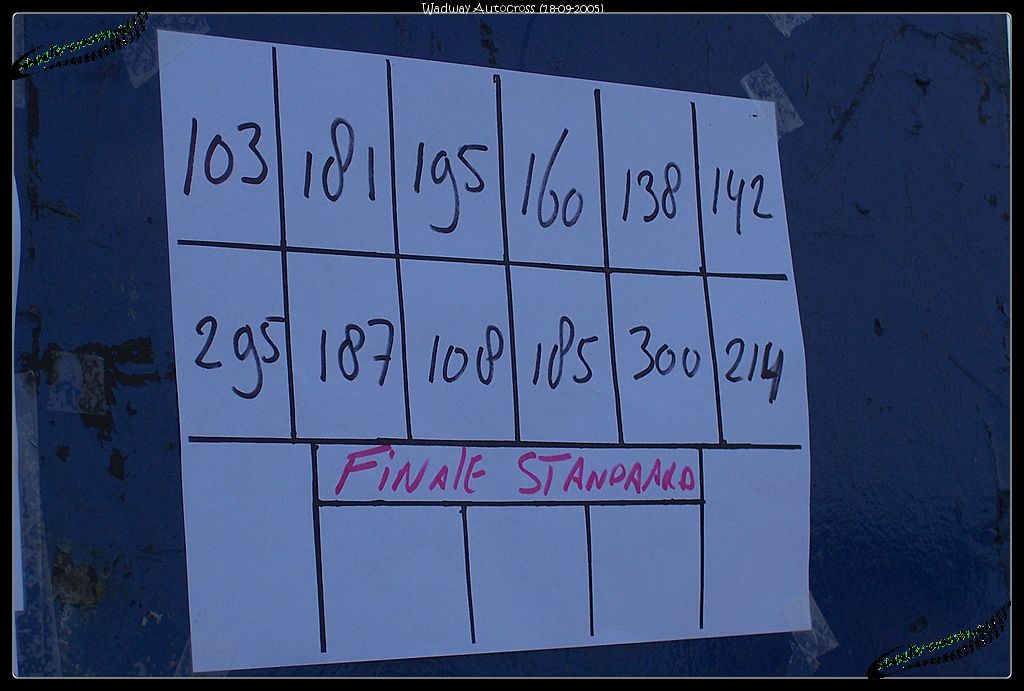 Wadway Autocross (18-09-2005)
103 181 195 160 138 142
295 187 108 185 300 214
FiNAlE STANDAARD